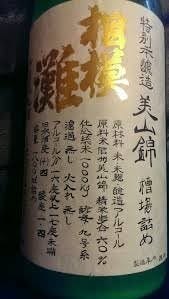 特別本醸造 美山錦 槽場詰め
相模灘
原材料 米 米麹 醸造アルコール
原料米 信州美山錦 精米歩合六〇%
仕込総米 1000Kg 酵母 九号系
濾過 無し 火入れ 無し
アルコール分 十六度以上十七度未満